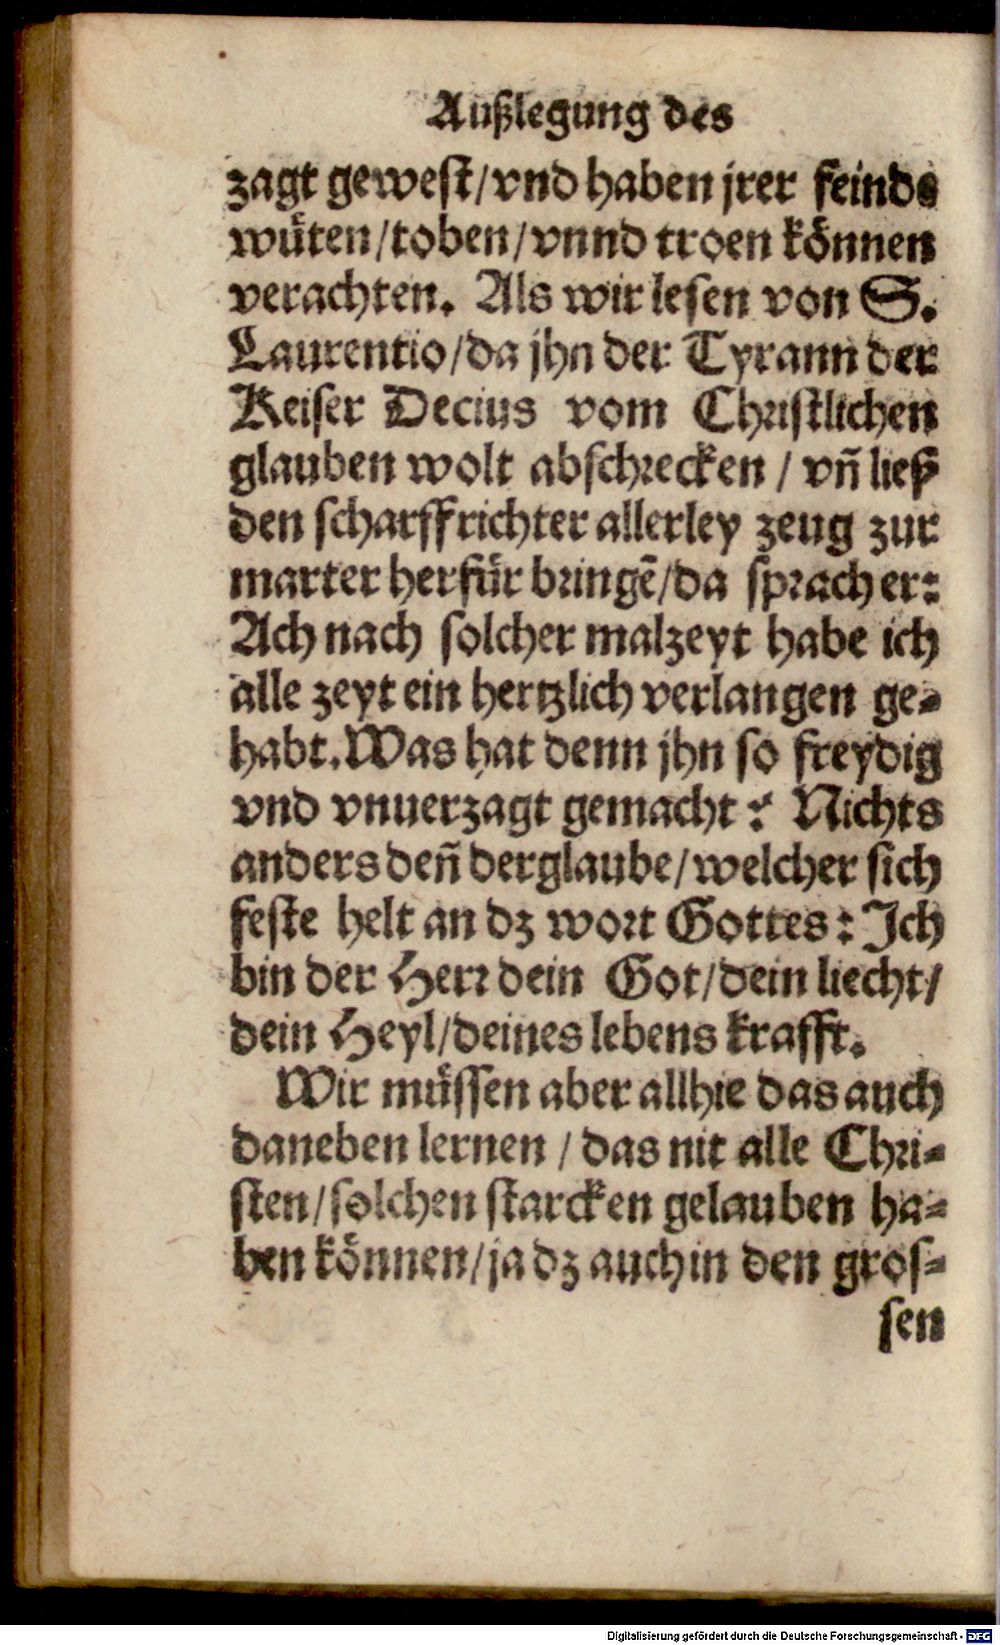 Außlegung des
zagt gewest/vnd haben jrer feinde
wüten/toben/vnnd troen können
verachten. Als wir lesen von S.
Laurentio/da jhn der Tyrann der
Keiser Decius vom Christlichen
glauben wolt abschrecken / vñ ließ
den scharffrichter allerley zeug zur
marter herfür bringē/da sprach er:
Ach nach solcher malzeyt habe ich
alle zeyt ein hertzlich verlangen ge-
habt. Was hat denn jhn so freydig
vnd vnuerzagt gemacht? Nichts
anders deñ der glaube/welcher sich
feste helt an dz wort Gottes: Ich
bin der Herr dein Got/dein liecht/
dein Heyl/deines lebens krafft.
Wir müssen aber allhie das auch
daneben lernen / das nit alle Chri-
sten/solchen starcken gelauben ha-
ben können/ja dz auch in den gros-
sen
Digitalisierung gefördert durch die Deutsche Forschungsgemeinschaft - DFG